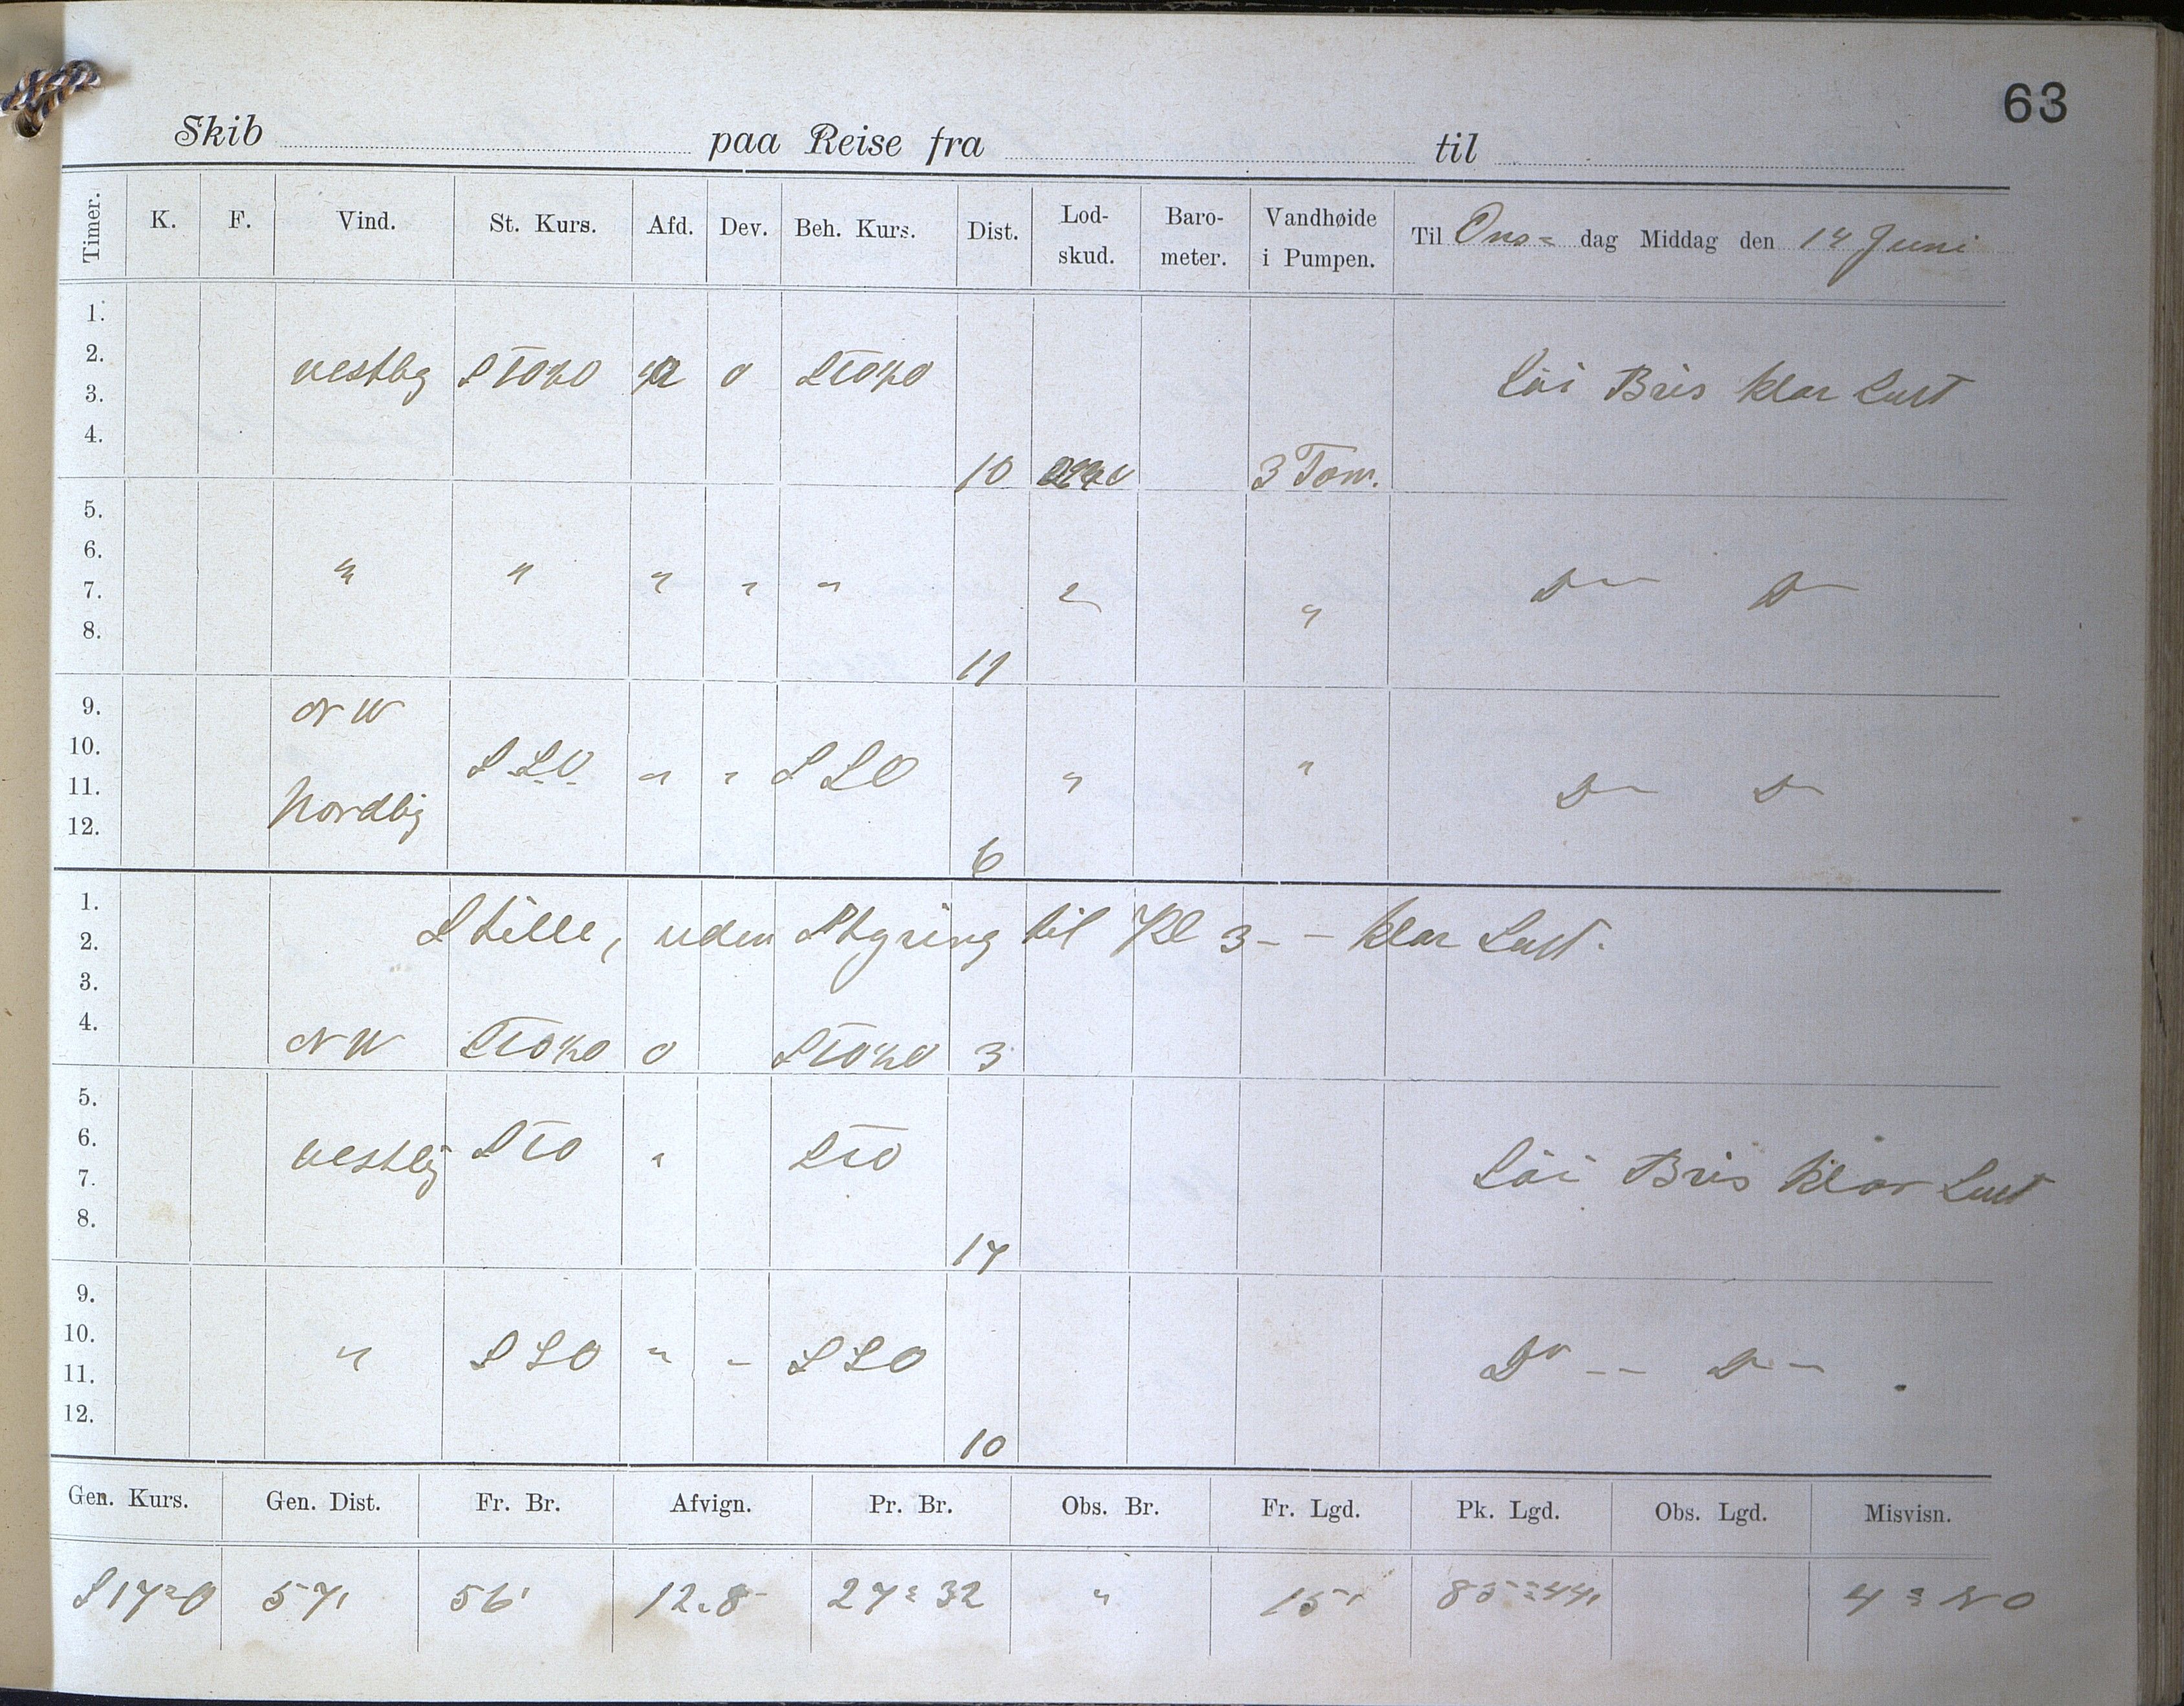 63
Skib paa Reise fra til
Timer. K. F. Vind. St. Kurs. Afd. Dev. Beh. Kurs. Dist. Lod-skud. Baro-meter. Vandhøide i Pumpen. Til Ons= dag Middag den 14 Juni
1.
2. vestlig StO½O 0 StO½O Löi Bris klar Luft
3.
4. 10 3 Tom.
5.
6. " " " " " D— D—
7. " "
8. 11
9. NW
10. SSO " " SSO " " D— D—
11. Nordlig
12. 6
1.
2. Stille, uden Styring til Kl 3 - - klar Luft.
3.
4. NW StO½O 0 StO½O 3
5.
6. vestlig StO " StO Löi Bris klar Luft
7.
8. 17
9.
10. " SSO " - SSO Do -- D —
11.
12. 10
Gen. Kurs. Gen. Dist. Fr. Br. Afvign. Pr. Br. Obs. Br. Fr. Lgd. Pk. Lgd. Obs. Lgd. Misvisn.
S17°O 57' 56' 12.8 27=32 " 15' 85=44' 4° NO